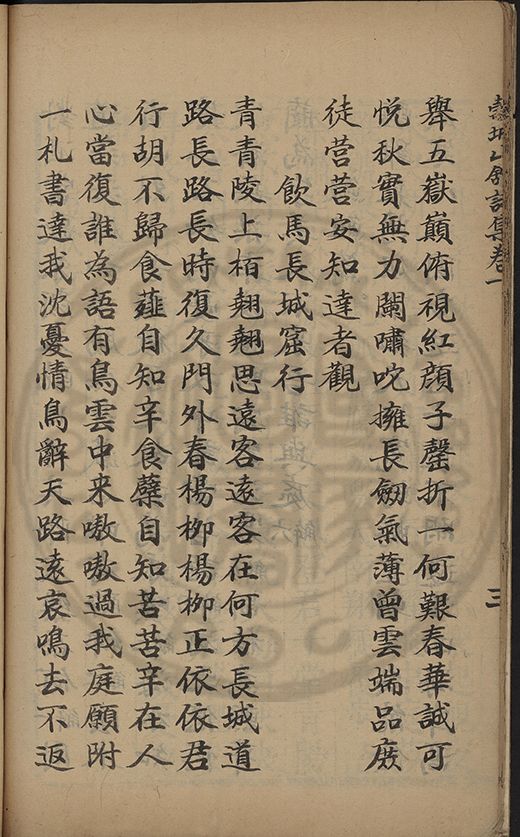 詩集卷一
三
舉五嶽巔俯視紅顏子罄折一何艱春華誠可
悅秋實無力闌嘯咤擁長劒氣薄曾雲端品庻
徒营营安知達者觀
飲馬長城窟行
青青陵上栢翹翹思遠客遠客在何方長城道
路長路長時復久門外春楊栁楊栁正依依君
行胡不歸食薤自知辛食蘗自知苦苦辛在人
心當復誰為語有鳥雲中来嗷嗷過我庭願附
一札書達我沈憂情鳥辭天路遠哀鳴去不返